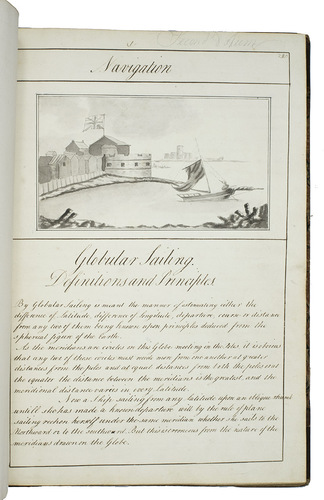 Navigation
Globular Sailing.
Definitions and Principles
By Globular Sailing is meant the manner of estimating either the
difference of Latitude, difference of longitude, departure, course or distance
from any two of them being known upon principles deduced from the
spherical figure of the Earth.
As the meridians are circles on this Globe meeting in the Poles, it is obvious
that any two of these circles must needs move from one another at greater
distances from the poles and at equal distances from both the poles viz at
the equator the distance between the meridians is the greatest, and the
meridional distance varies in every Latitude.
Now a Ship sailing from any Latitude upon an oblique rhumb
untill she has made a known departure will by the rule of plane
sailing reckon herself under the same meridian whether she sails to the
Northward or to the southward. But this is erroneous from the nature of the
meridians drawn on the Globe.